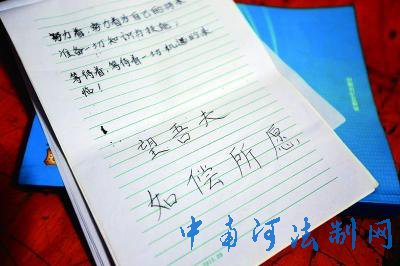 努力着,努力着为自己的将来
准备一切知识与技能,
等待着,等待着一切机遇的来
临!
望吾夫
如偿所愿
中南河法制网